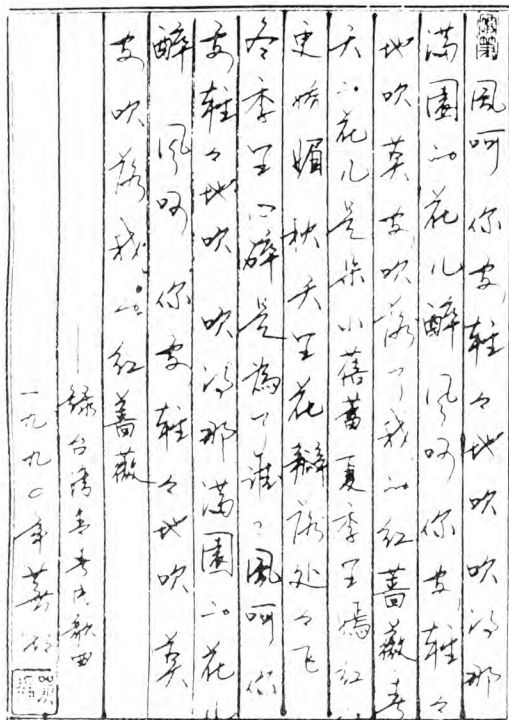 風呵你要輕々地吹 吹得那
滿園的花儿醉 风呵 你要輕々
地吹 莫要吹落了我的紅薔薇 春
天的花儿是朵小蓓蕾 夏季里嫣红
更嬌媚 秋天里花瓣落处々飞
冬季里心碎是為了誰 風呵 你
要輕々地吹 吹得那滿園的花儿
醉 风呵 你要輕々地吹 莫
要吹落我的紅薔薇
——録台湾歌曲
一九九〇年